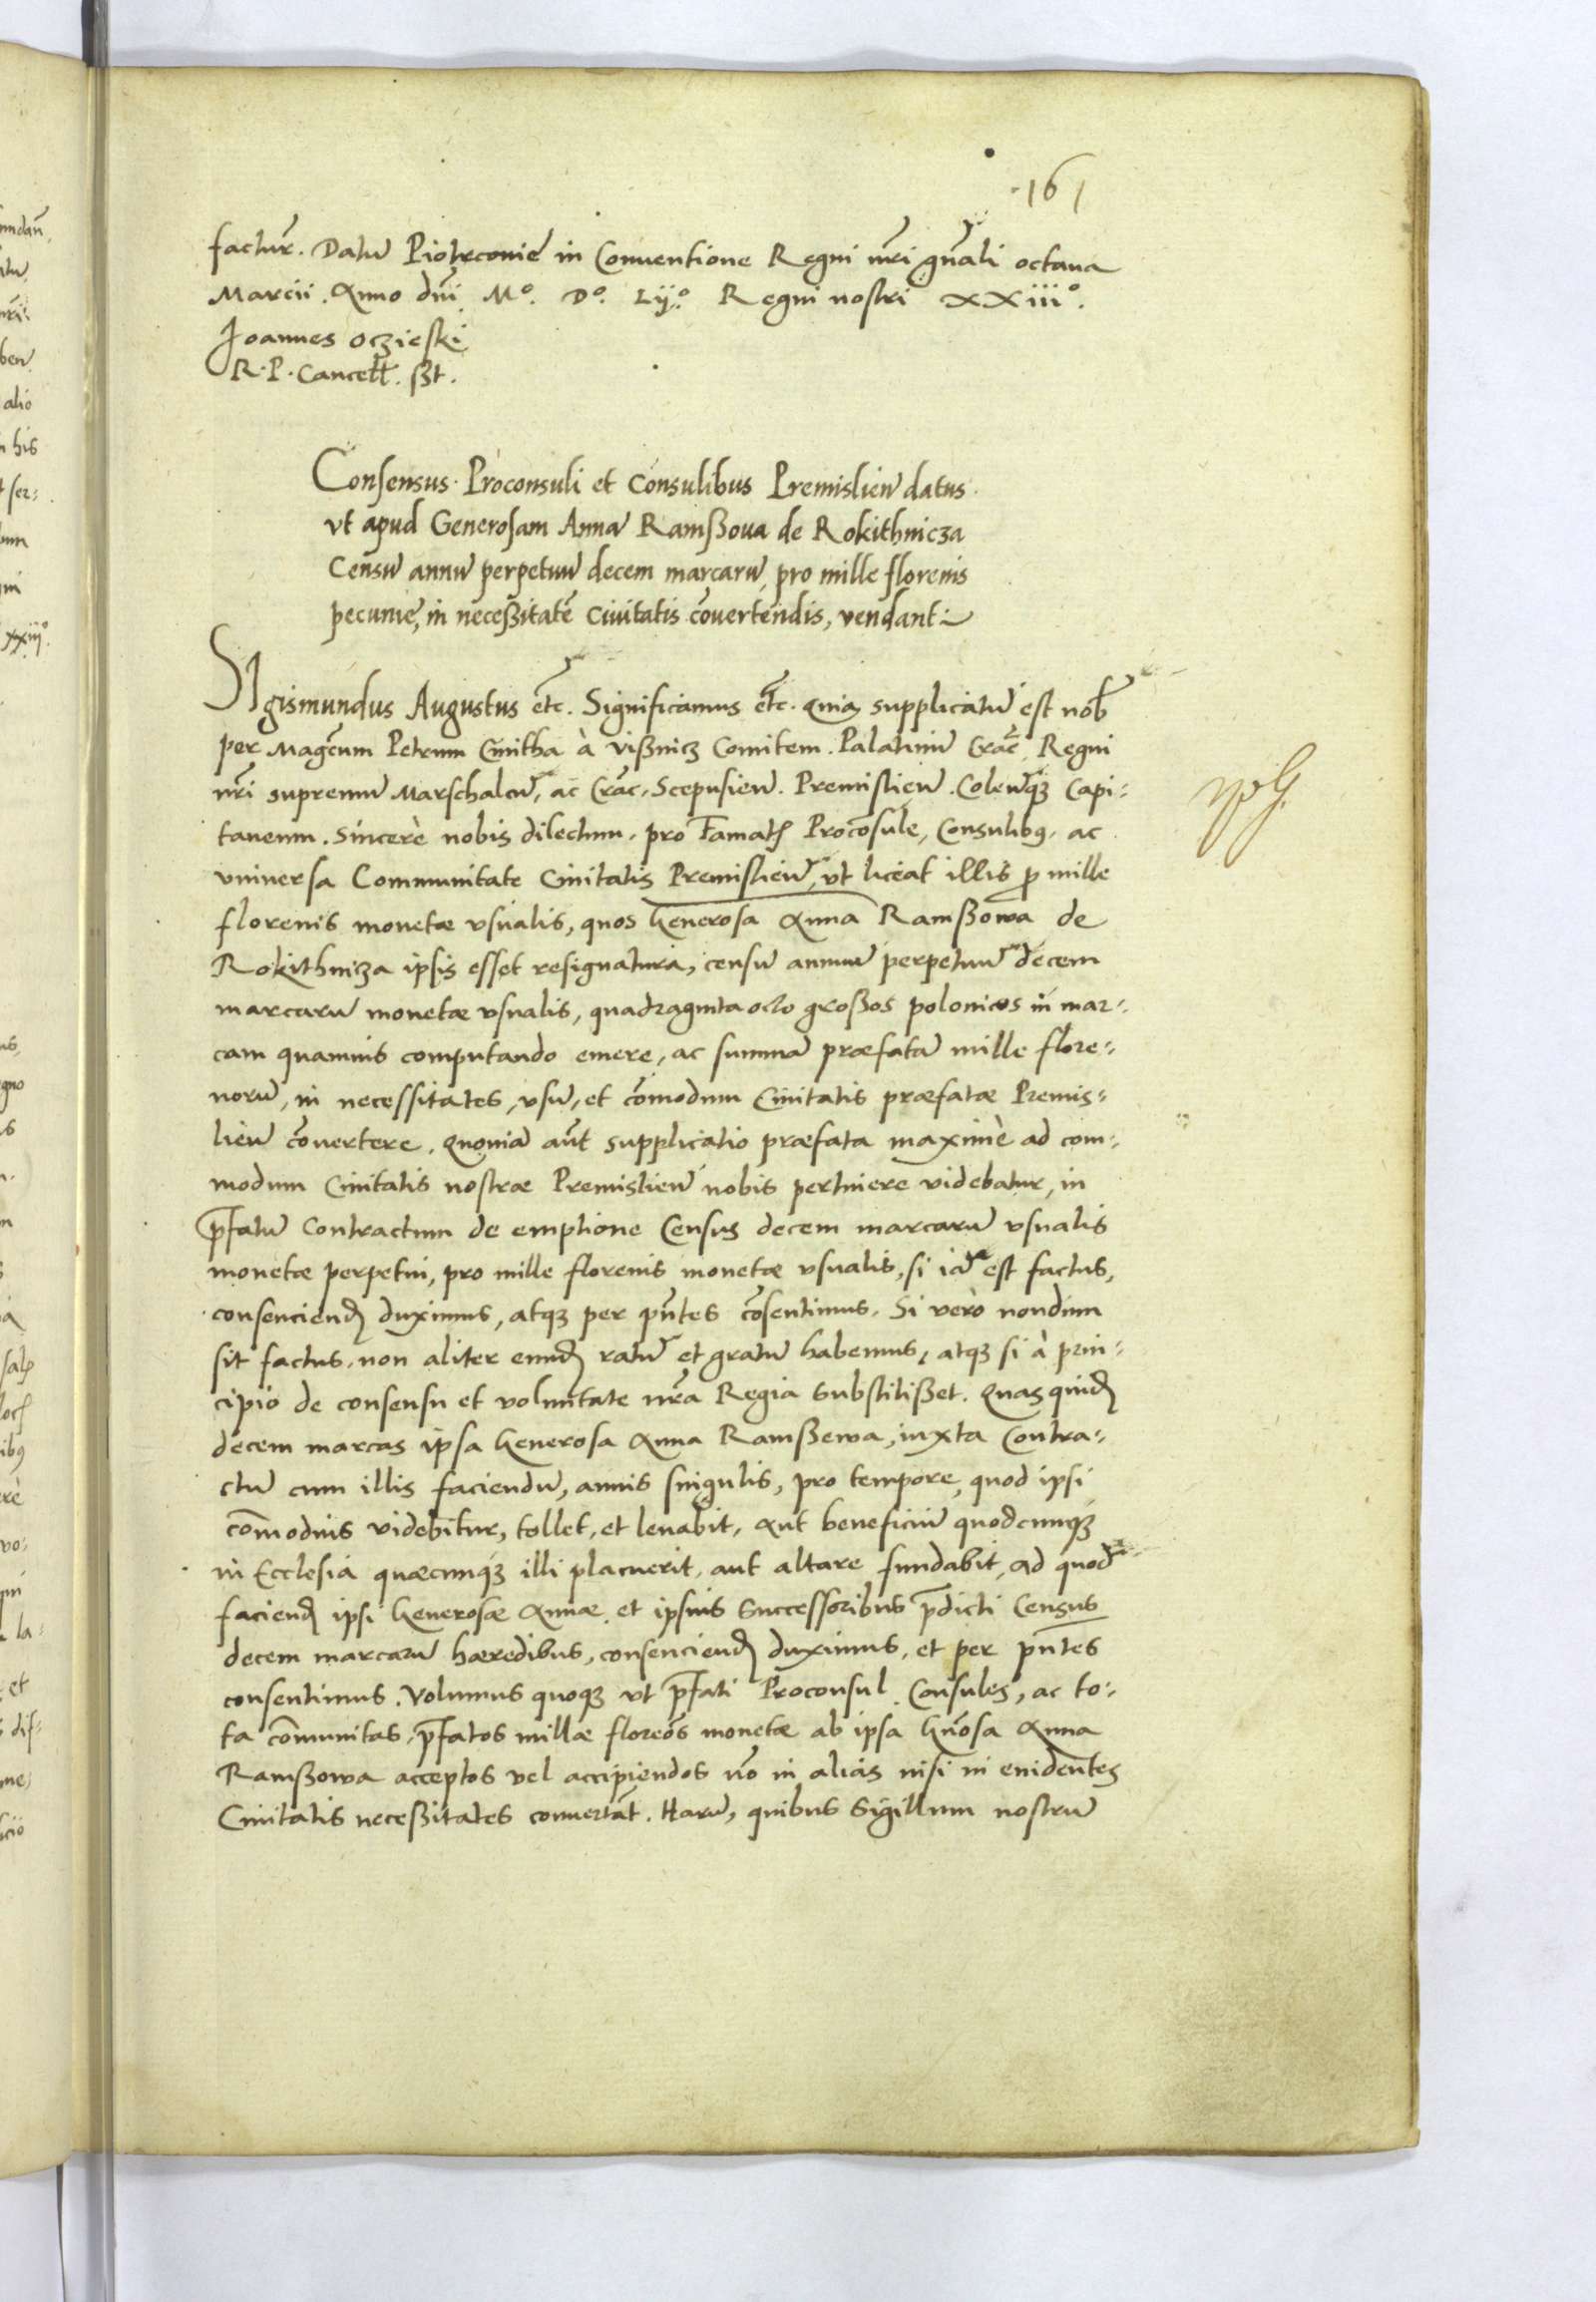 161
factur̃. Datũ Piotrconiẽ in Conventione Regni nr̃i gñali octaua
Marcii. Anno dñi M°. D°. Lij°. Regni nostri XXiii°.
Joannes Oczieski
R. P. Cancell. ßt.
Consensus Proconsuli et Consulibus Premislieñ datus
vt apud Generosam Annã Ramßoua de Rokithnicza
Censũ annũ perpetuũ decem marcarũ, pro mille florenis
pecuniẽ, in neceßitatẽ Ciuitatis cõuertendis, vendant:
SIgismundus Augustus etc̃. Significamus etc̃. quia supplicatũ est nob̃
per Magcũm Petrum Cmitha à Vißnicz Comitem. Palatinũ Crac̃. Regni
nr̃i supremũ Marschalcũ, ac Crac̃. Scepusieñ. Premislieñ. Coleñq3 Capi:
taneum. Sincerè nobis dilectum. pro Famatꝭ Procõsule, Consulibꝯ, ac
vniuersa Communitate Ciuitatis Premislieñ, vt liceat illis ꝓ mille
florenis monetæ vsualis, quos Generosa Anna Ramßowa de
Rokithnicza ipsis esset resignatura, censũ annuũ perpetuũ decem
marcarũ monetæ vsualis, quadraginta octo großos polonicos in mar:
cam quamuis computando emere, ac summã præfatã mille flore:
norũ, in necessitates, vsũ, et cõmodum Ciuitatis præfatæ Premis:
lieñ cõuertere. Quoniã aũt supplicatio præfata maximè ad com:
modum Ciuitatis nostræ Premislieñ nobis pertinere videbatur, in
p̃fatũ Contractum de emptione Census decem marcarũ vsualis
monetæ perpetui, pro mille florenis monetæ vsualis, si iã est factus,
consenciendꝭ duximus, atq3 per pñtes cõsentimus. Si verò nondum
sit factus, non aliter eundꝭ ratũ et gratũ habemus, atq3 si à prin:
cipio de consensu et voluntate nr̃a Regia substitißet. Quas quidꝭ
decem marcas ipsa Generosa Anna Ramßewa, iuxta Contra:
ctũ cum illis faciendũ, annis singulis, pro tempore, quod ipsi
com̃odius videbitur, tollet, et leuabit. Aut beneficiũ quodcunq3
in Ecclesia quæcunq3 illi placuerit, aut altare fundabit, ad quod
faciendꝭ ipsi Generosæ Annæ et ipsius Successoribus p̃dicti Census
decem marcarũ hæredibus, consenciendꝭ duximus, et per pñtes
consentimus. Volumus quoq3 vt p̃fati Proconsul, Consules, ac to:
ta cõmunitas, p̃fatos millæ floreõs monetæ ab ipsa Gñosa Anna
Ramßowa acceptos vel accipiendos nõ in alias nisi in euidentes
Ciuitatis neceßitates conuertãt. Harũ, quibus Sigillum nostrũ